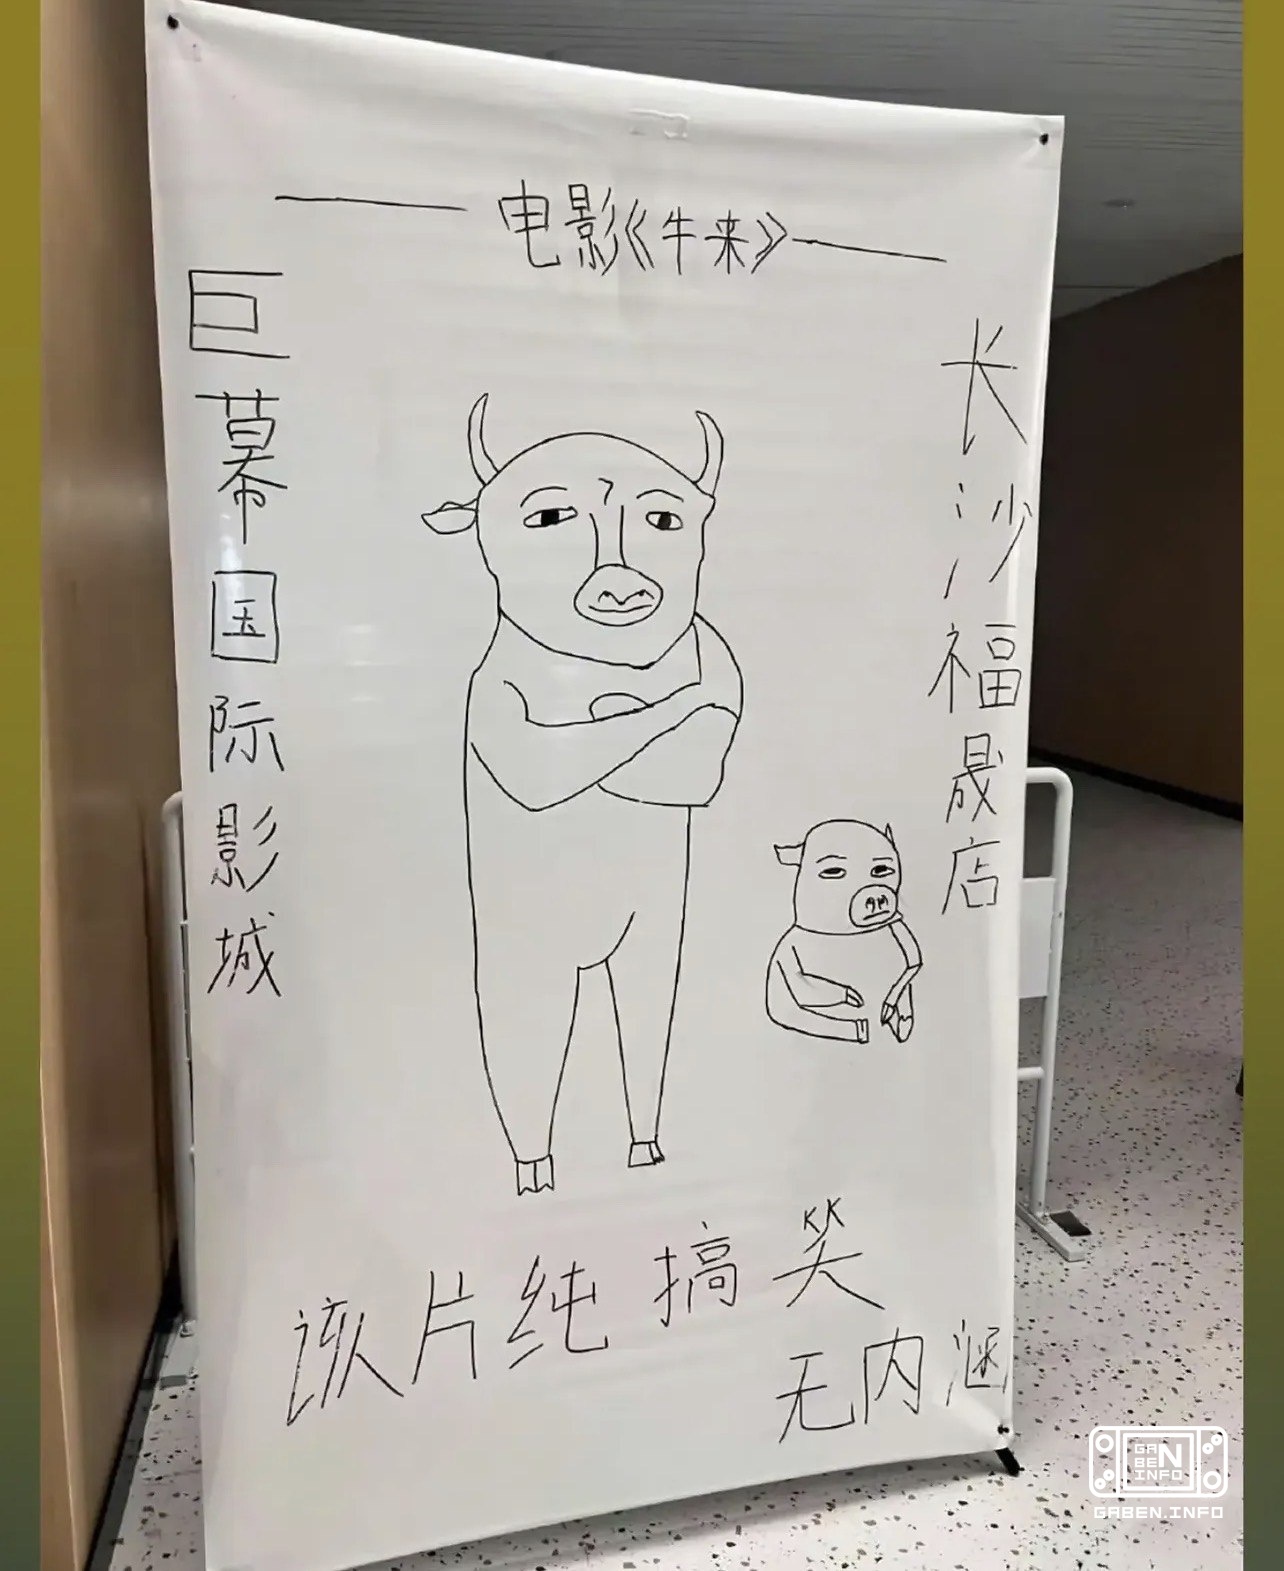 电影《牛来》
巨幕国际影城
长沙福晟店
该片纯搞笑
无内涵
GABEN
INFO
GABEN.INFO